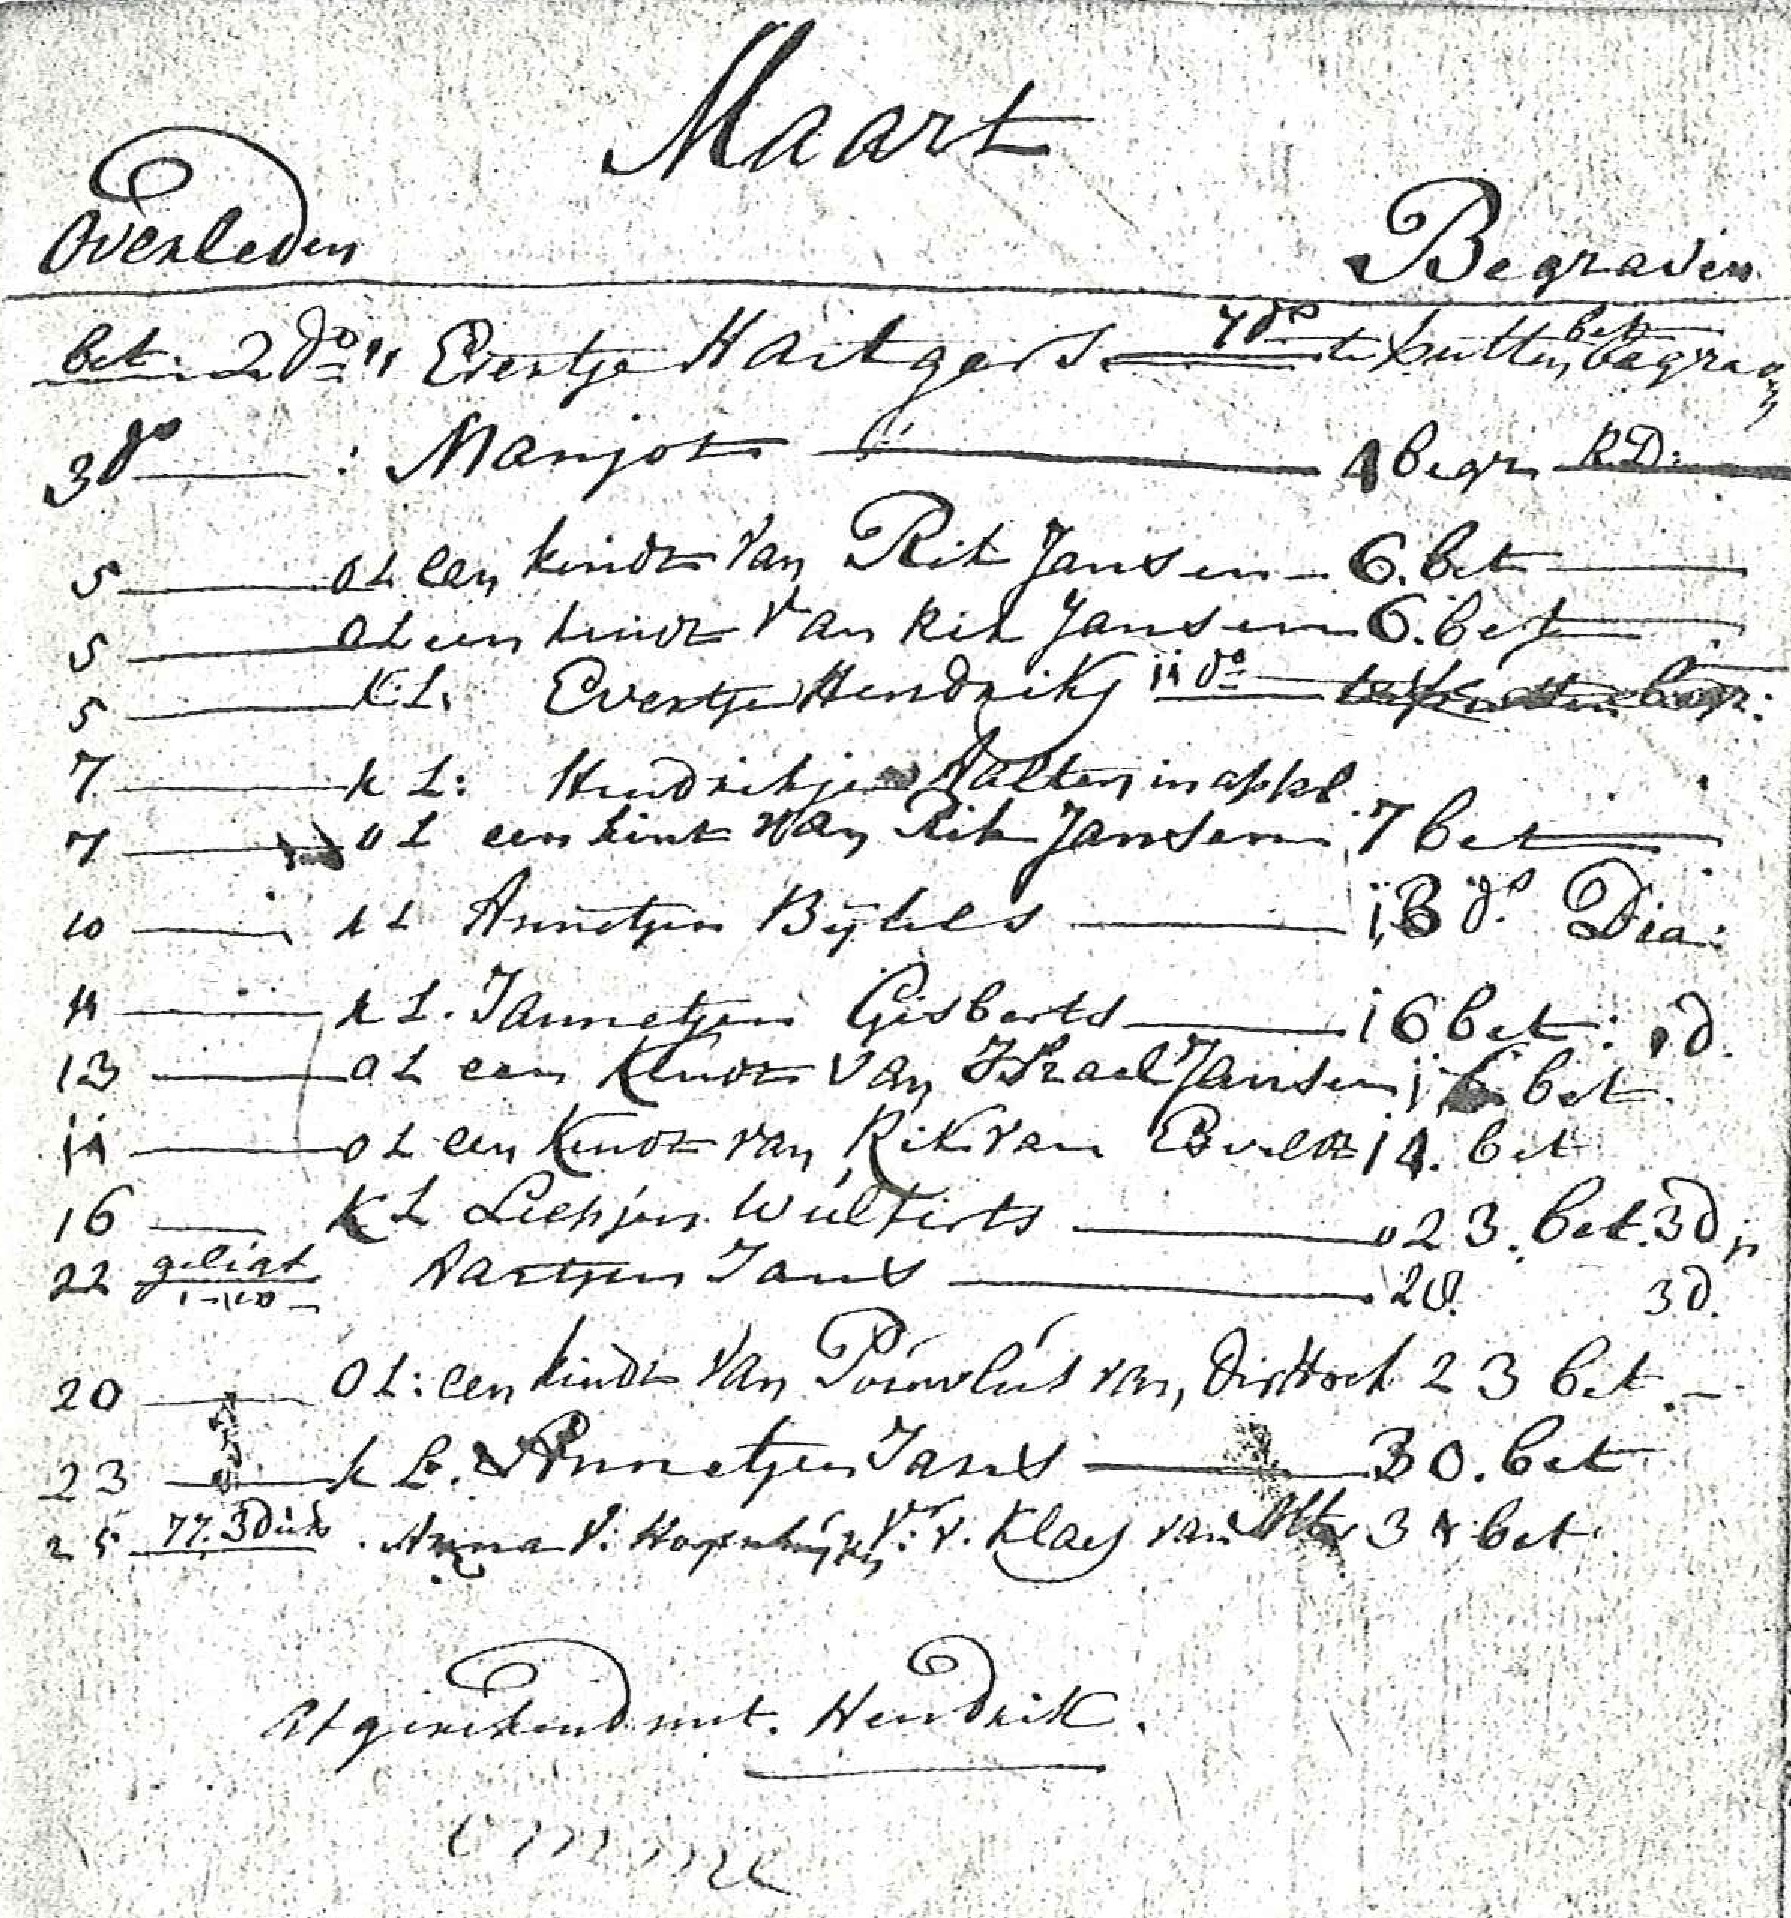 Maart
Overleden Begraven
bet: 2 do Evertje Hartgers 7 do te putten bet begrav
3 do : Manjot 4 begr R:D:
5 o L een kindt van Rik Jansen 6. bet
5 o L een kindt van Rik Jansen 6. bet
5 K:L. Evertje Hendriks 11 do begr:
7 k L: Hendrikje Aalten in appel
7 o L een kint van Rik Jansen 7 bet
10 k L Annetjen Bijlels 13 do Dia:
11 k L. Jannetjen Gisberts 16 bet: 1 d.
13 o L een Kindt van Israel Jansen bet.
11 o L een Kindt van Rik van 14. bet
16 K L Liesjen Wulferts 23. bet. 3 d
22 geligt Aartjen Jans 28. 3 d.
20 O L: een kindt van Pouwlus van, 23 bet.
23 k L. Annetjen Jans 30. bet
25 77. 3 duit Anna V: v. Klaes van bet
Afgerekend met. Hendrik.